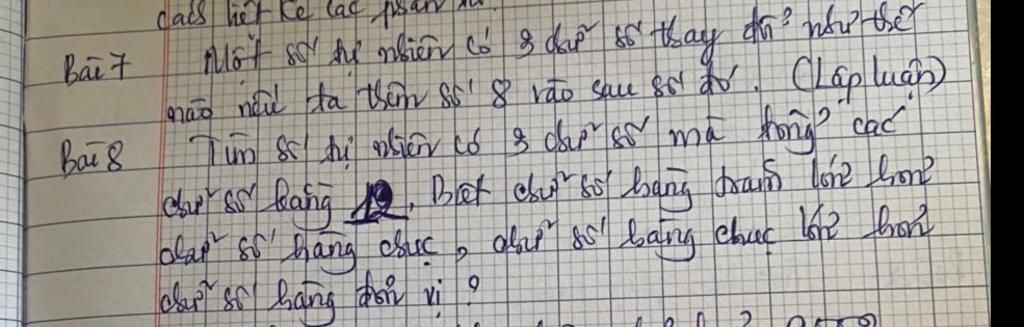 cách liệt kê các phần tử.
Bài 7 Một số tự nhiên có 3 chữ số thay đổi như thế
nào nếu ta thêm số 8 vào sau số đó. (Lập luận)
Bài 8 Tìm số tự nhiên có 3 chữ số mà tổng các
chữ số bằng . Biết chữ số hàng trăm lớn hơn
chữ số hàng chục, chữ số hàng chục lớn hơn
chữ số hàng đơn vị ?